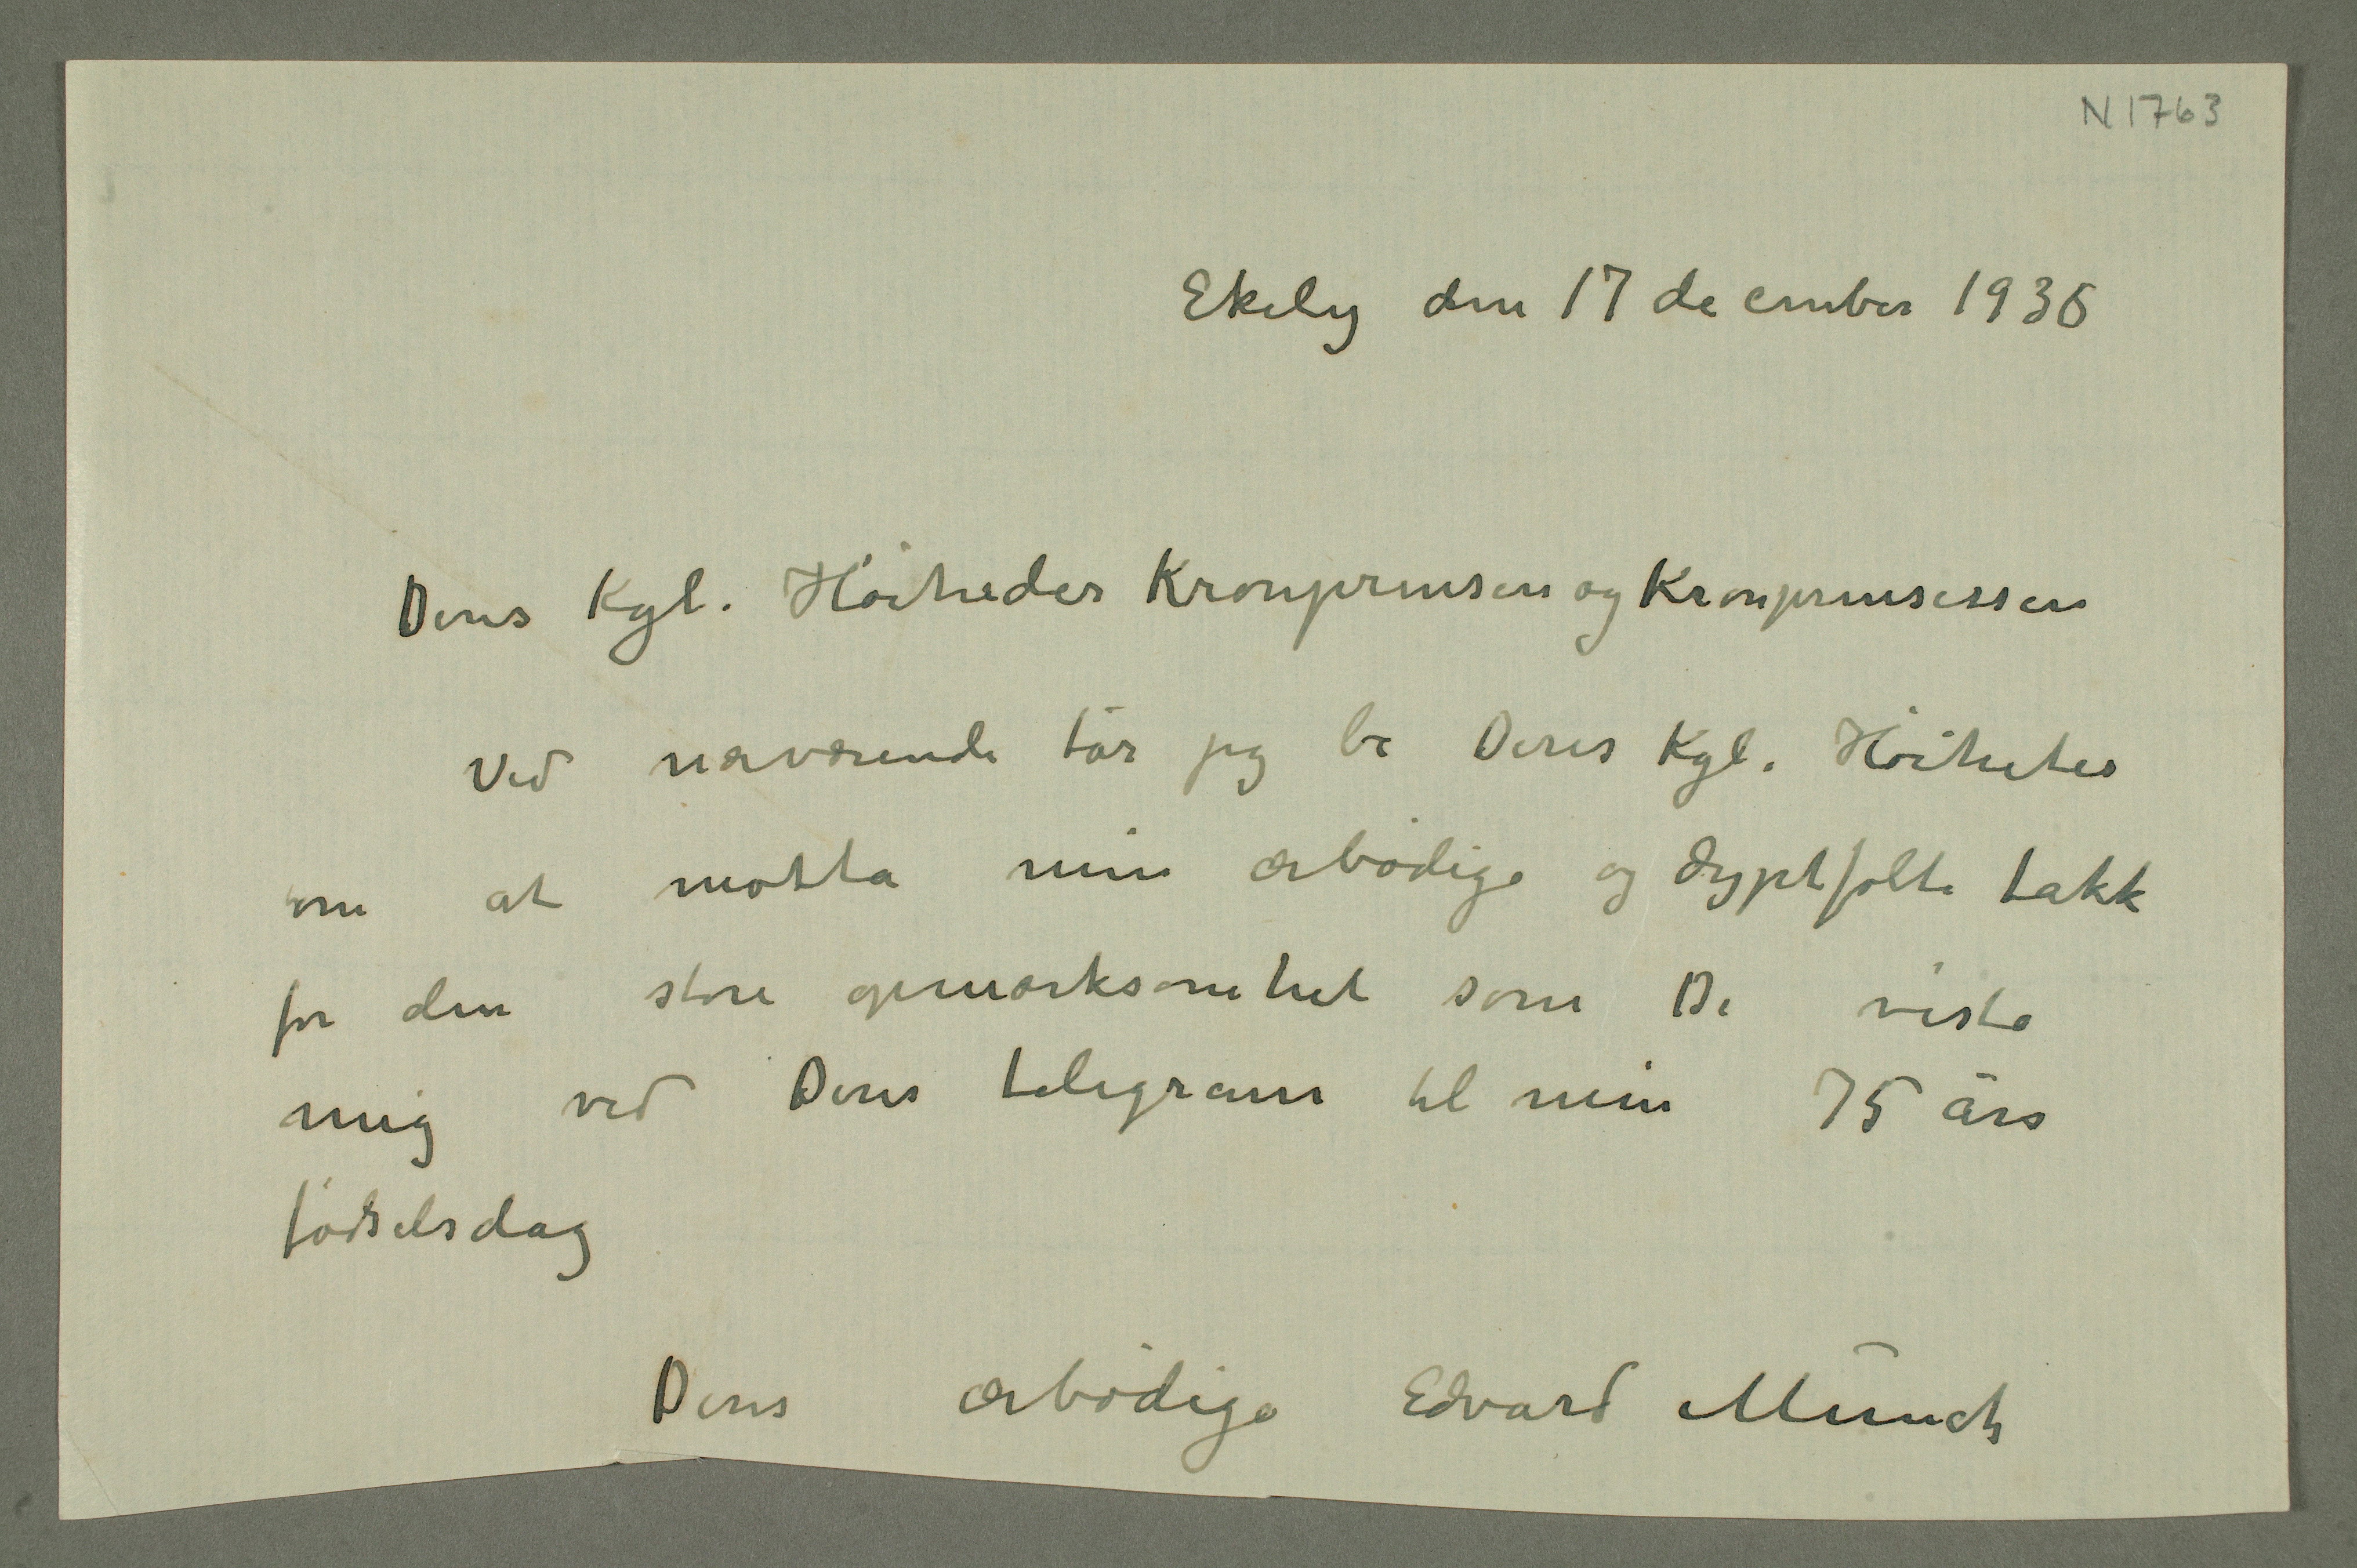 N 1763
Ekely den 17 december 1938
Deres Kgl. Höiheder Kronprinsen og Kronprinsessen
Ved nærværende tör jeg be Deres Kgl. Höiheter
om at motta min ærbödige og dyptfölte takk
for den store opmærksomhet som De viste
mig ved Deres telegram til min 75 års
födselsdag
Deres ærbödige Edvard Munch